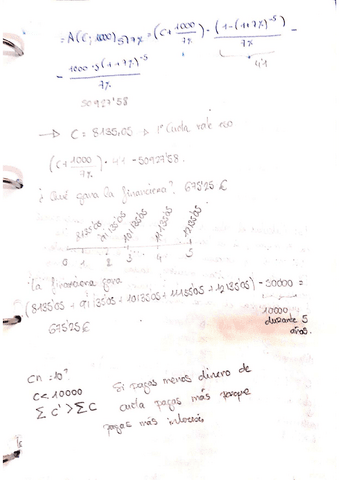 = A(C; 1000)5⌉7% = (C + 1000/7%) · (1-(1+7%)^-5)/7% -
4'1
- 1000·5(1+7%)^-5/7%
50927'58
→ C = 8135,05 → 1ª Cuota vale eso
(C + 1000/7%) · 4'1 - 50927'58.
¿Qué gana la financiera? 675'25 €
8135'05 9135'05 10135'05 11135'05 12135'05
0 1 2 3 4 5
La financiera gana
(8135'05 + 9135'05 + 10135'05 + 11135'05 + 12135'05) - 50000 =
675'25 €
10000
durante 5
años.
Cn = 10
C < 10000
Σ C' > Σ C
Si pagas menos dinero de
cuota pagas más porque
pagas más intereses.